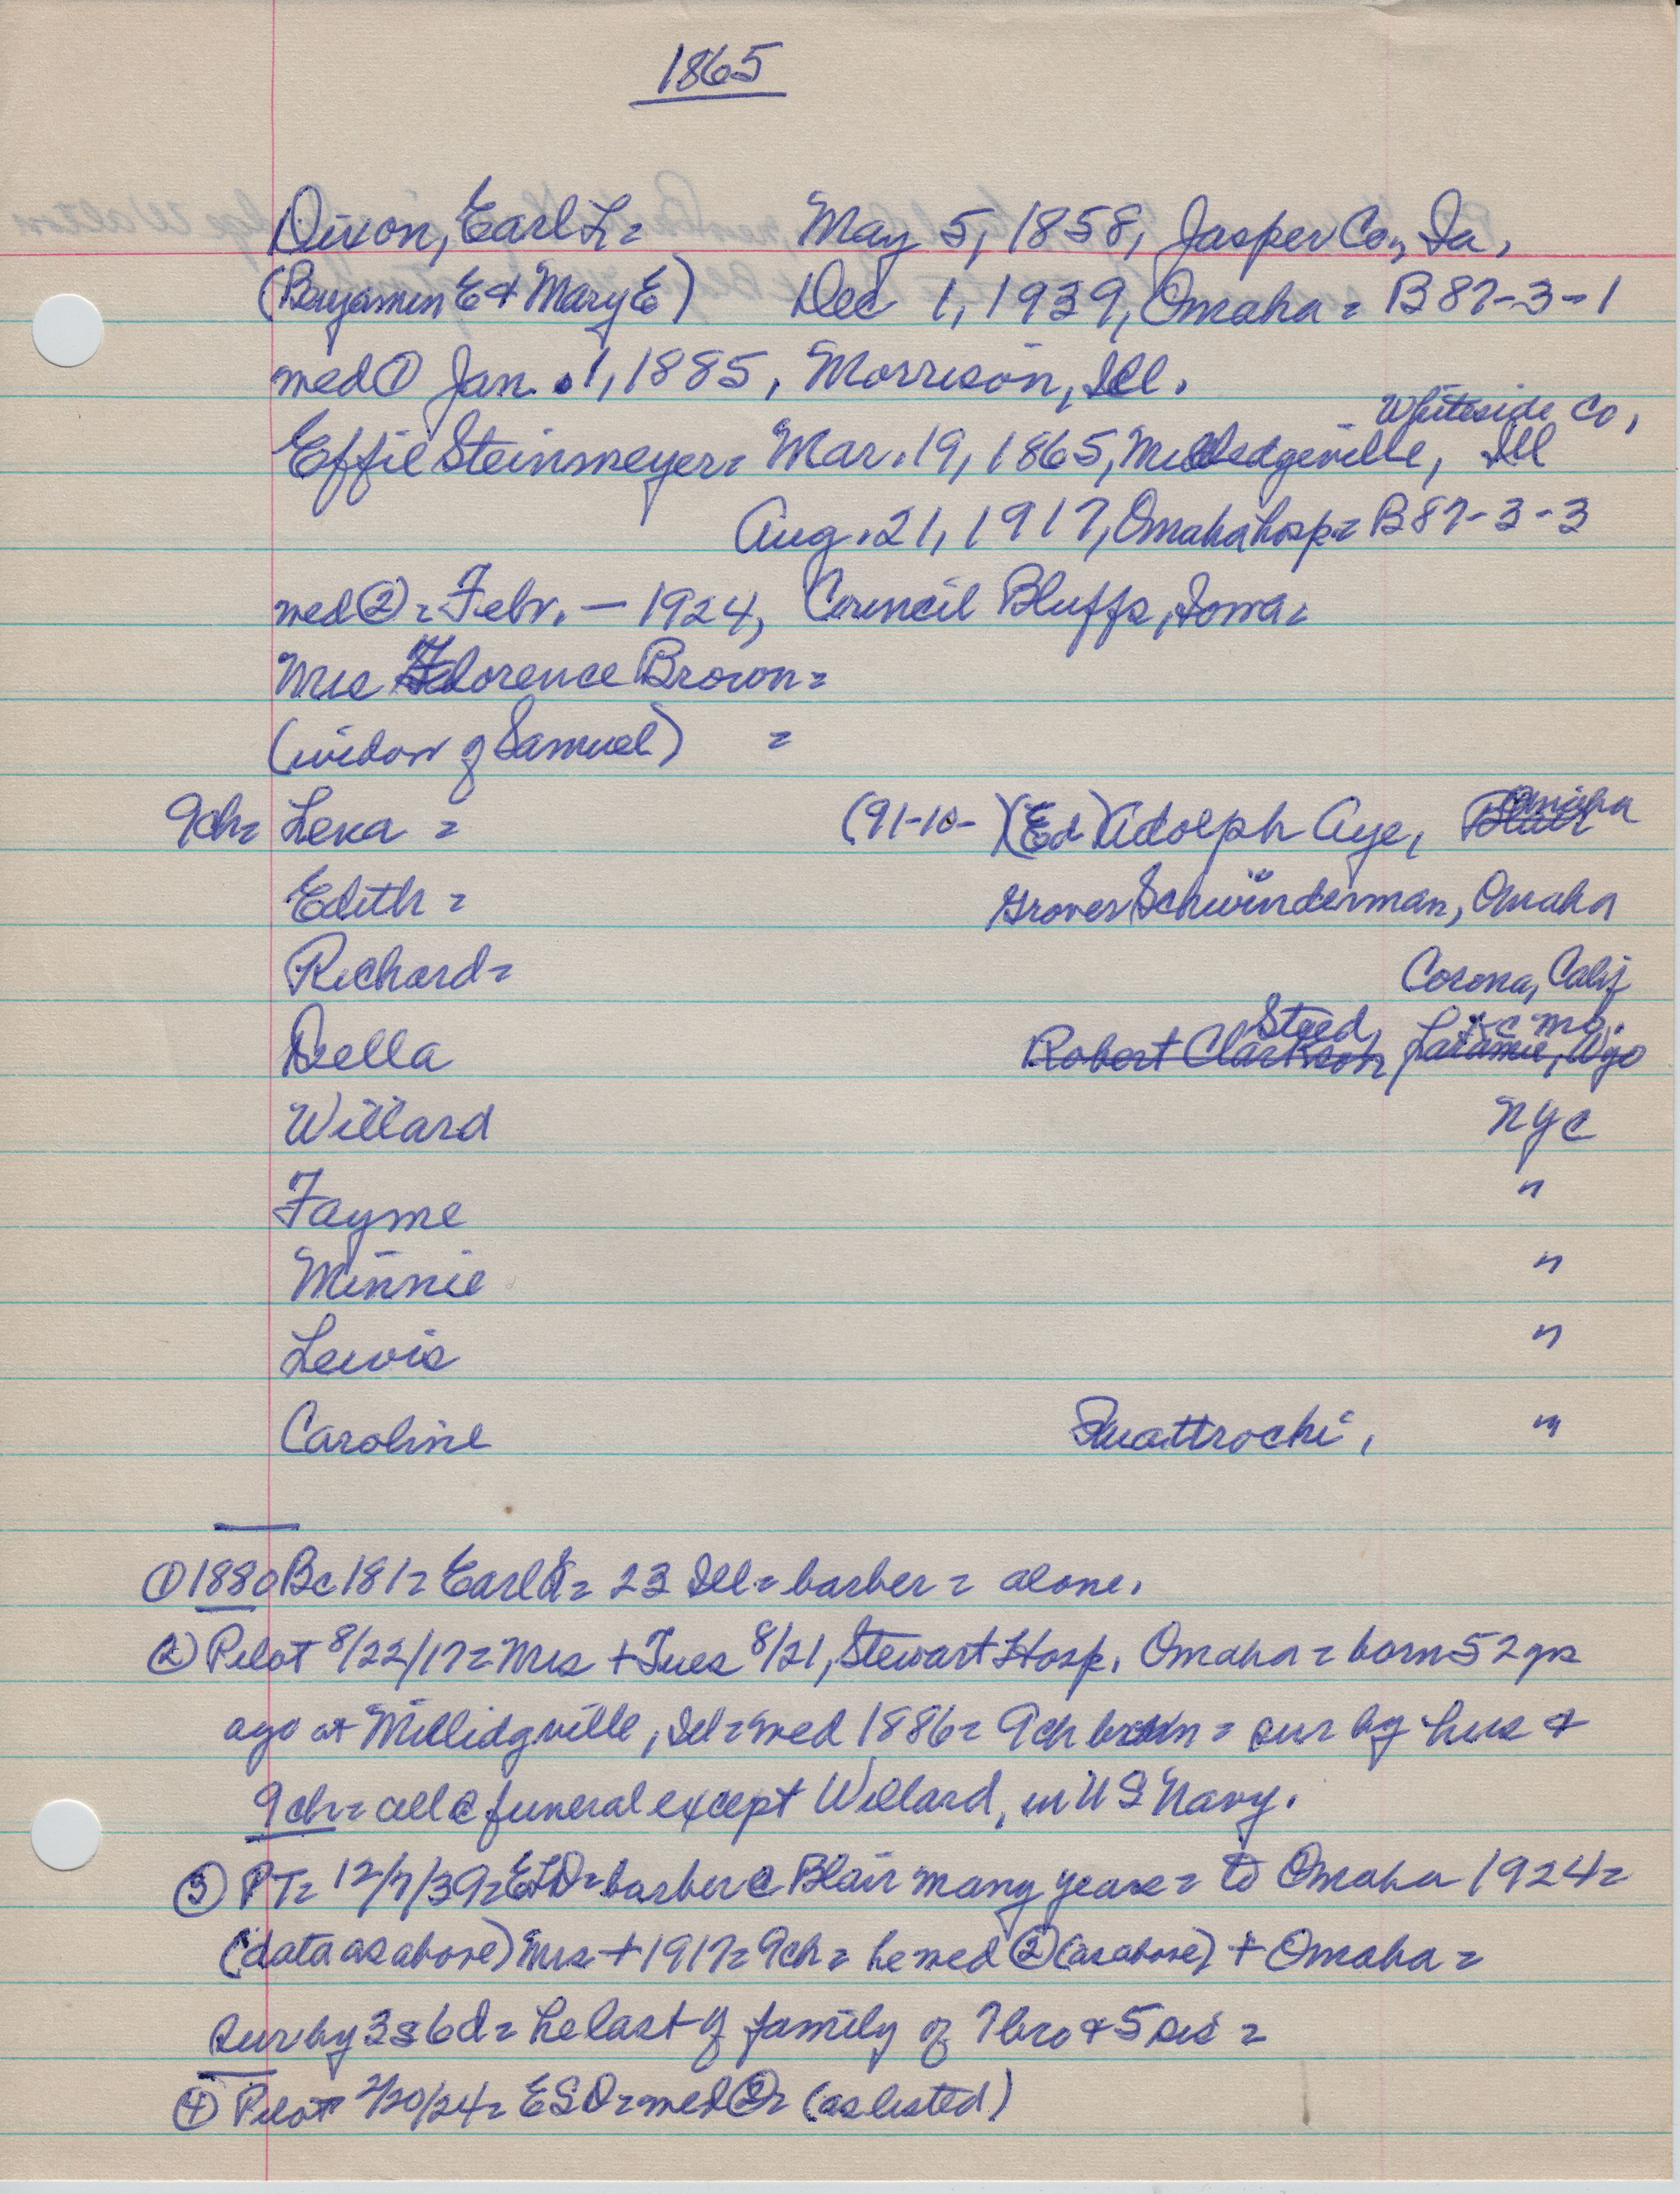 1865
Dixon, Earl L = May 5, 1858, Jasper Co, Ia,
(Benjamin E + Mary E) Dec 1, 1939, Omaha = B87-3-1
med ① Jan. 1, 1885, Morrison, Ill.
Whiteside Co,
Effie Steinmeyer = Mar. 19, 1865, Milledgeville, Ill
Aug. 21, 1917, Omaha hosp = B87-3-3
med ② = Febr. — 1924, Council Bluffs, Iowa =
Mrs Florence Brown =
(widow of Samuel) =
9ch = Lena = (91-10- )(Ed) Adolph Aye, Blair Omaha
Edith = Grover Schwinderman, Omaha
Richard = Corona, Calif
Steed, K C Mo.
Della Robert Clarkson, Laramie, Wyo
Willard NYC
Fayme "
Minnie "
Lewis "
Caroline Quattrochi, "
① 1880 Bc 181 = Earl = 23 Ill = barber = alone.
② Pilot 8/22/17 = Mrs + Tues 8/21, Stewart Hosp. Omaha = born 52 yrs
ago at Millidgville, Ill = med 1886 = 9ch born = sur by hus +
9ch = all @ funeral except Willard, in US Navy.
③ PT = 12/7/39 = ELD = barber @ Blair many years = to Omaha 1924 =
(data as above) Mrs + 1917 = 9ch = he med ② (as above) + Omaha =
sur by 3s 6d = he last of family of 7 bro + 5 sis =
④ Pilot 2/20/24 = ESD = med ② = (as listed)